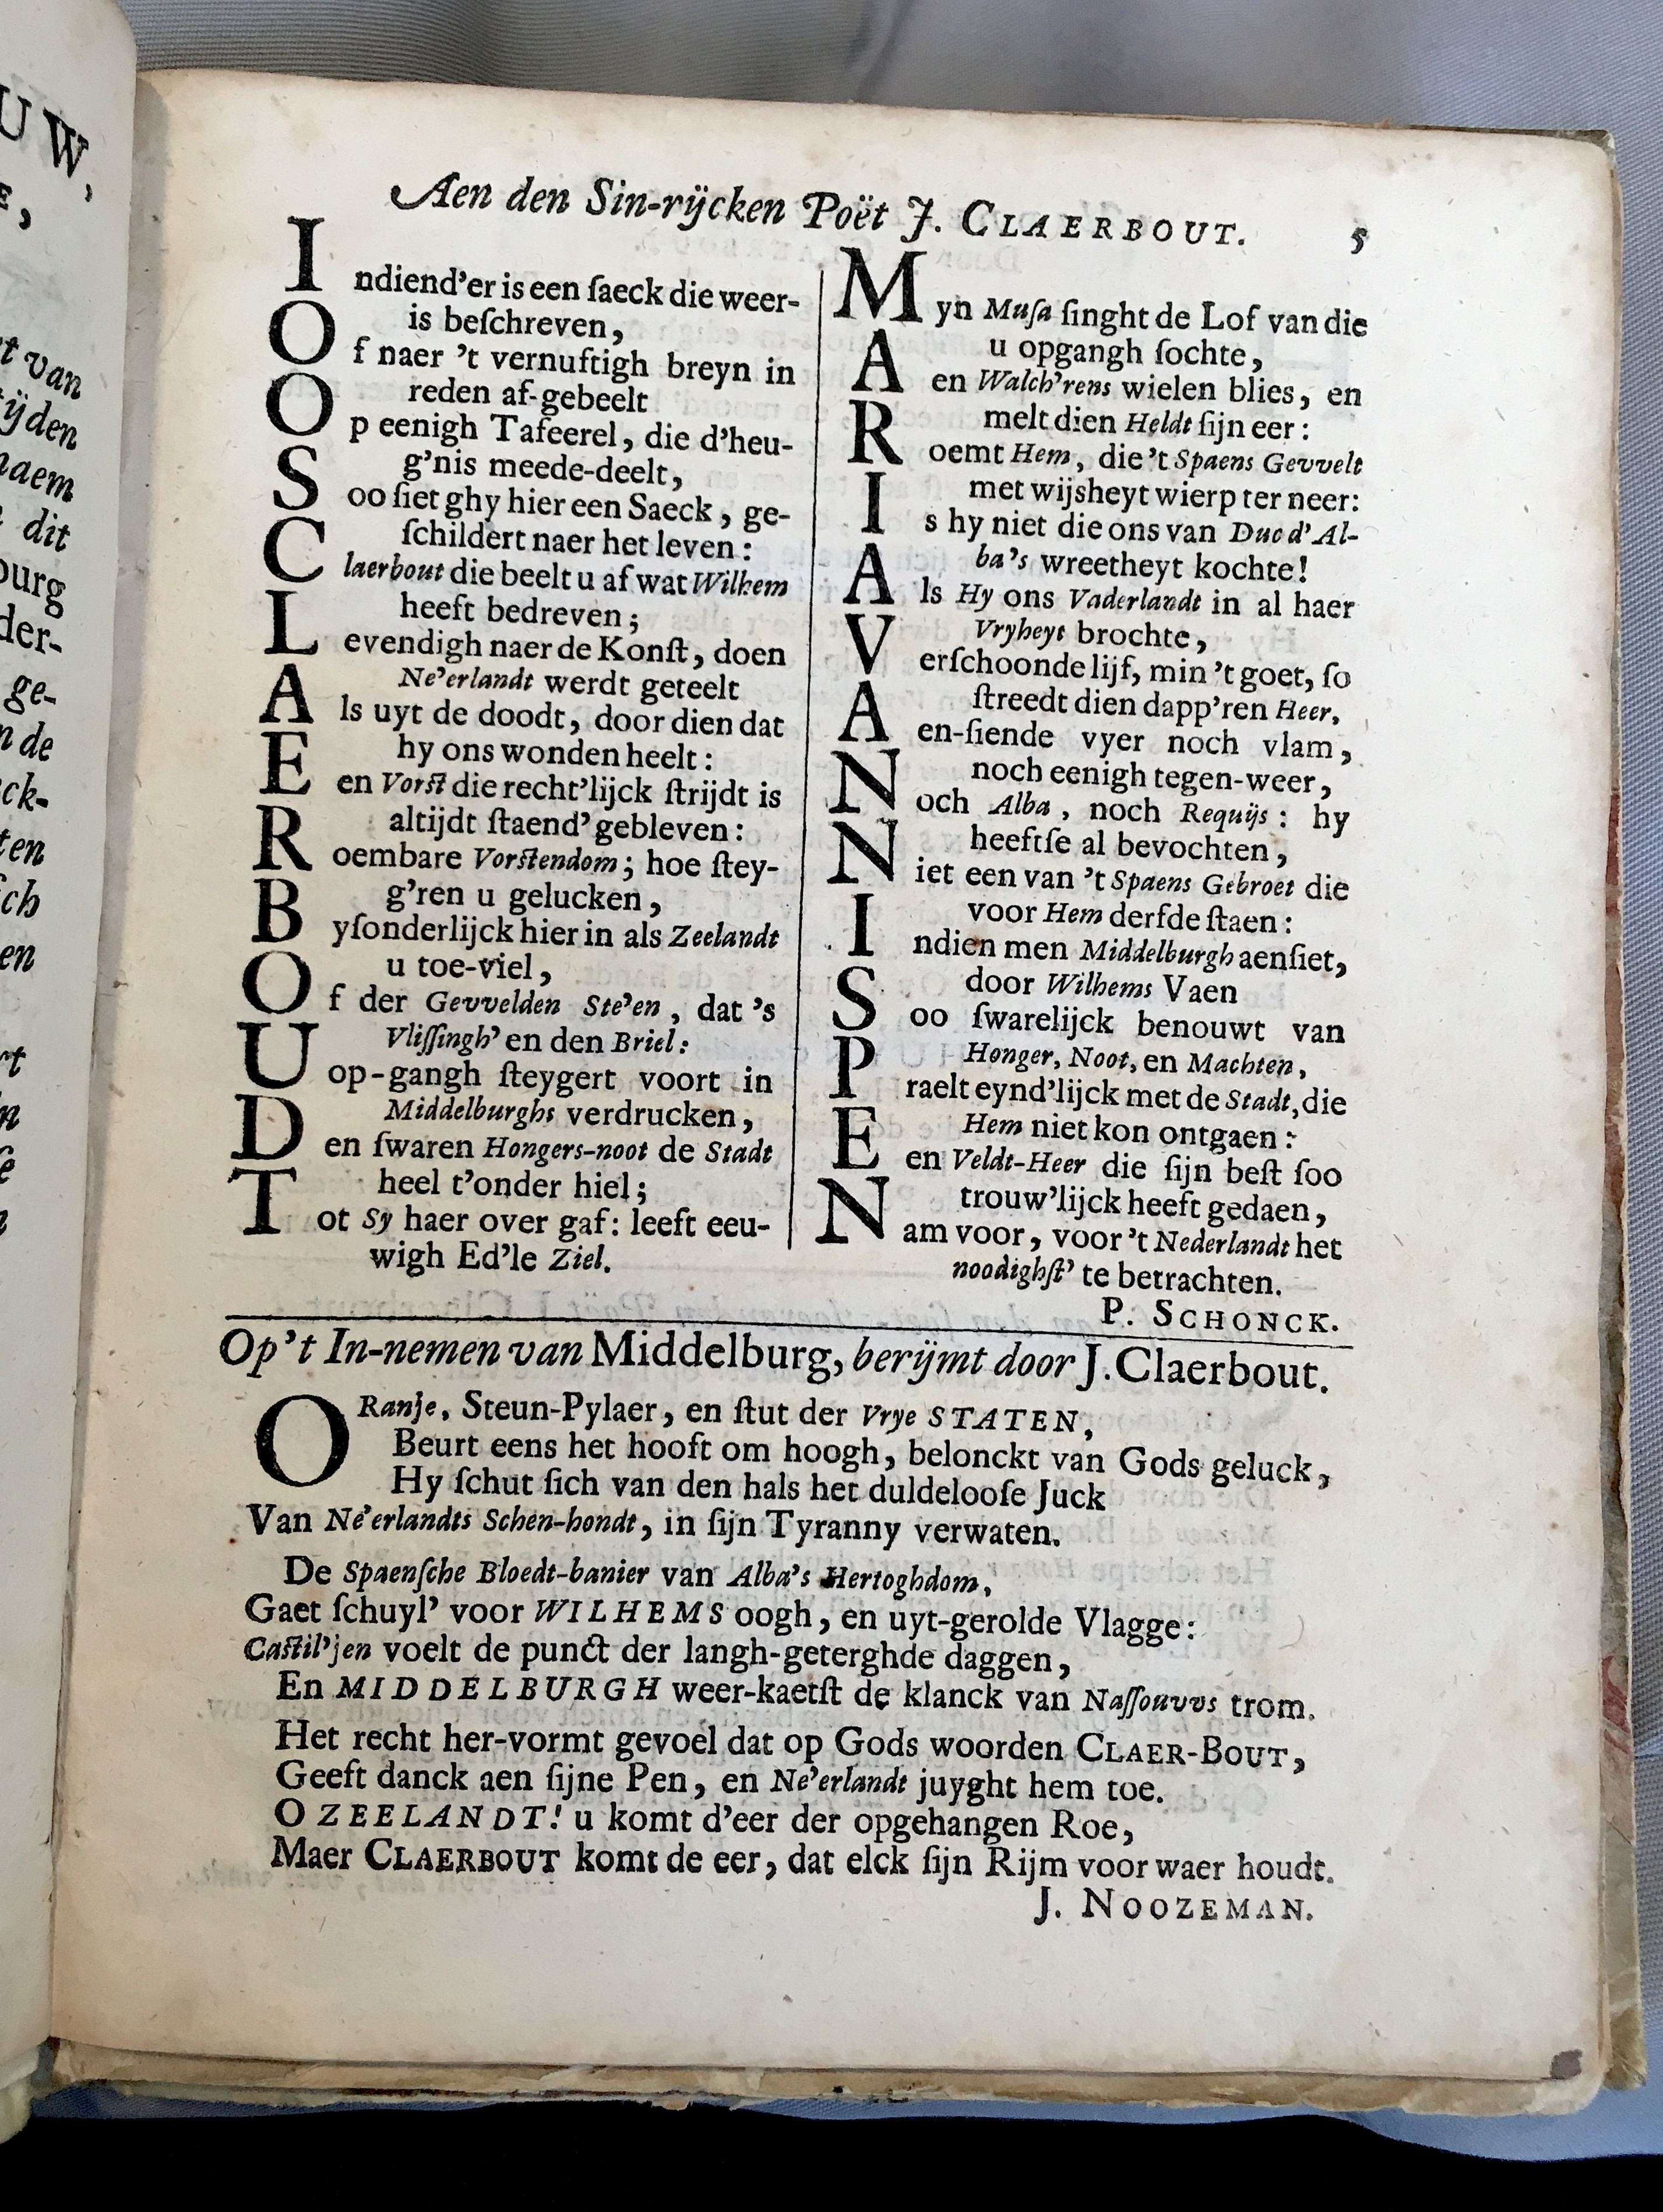 Aen den Sin-rijcken Poët J. CLAERBOUT. 5
Indiend'er is een ſaeck die weer-
is beſchreven,
Of naer 't vernuftigh breyn in
reden af-gebeelt
Op eenigh Tafeerel, die d'heu-
g'nis meede-deelt,
Soo ſiet ghy hier een Saeck, ge-
ſchildert naer het leven:
Claerbout die beelt u af wat Wilhem
heeft bedreven;
Levendigh naer de Konſt, doen
Ne'erlandt werdt geteelt
Als uyt de doodt, door dien dat
hy ons wonden heelt:
Een Vorſt die recht'lijck ſtrijdt is
altijdt ſtaend' gebleven:
Roembare Vorſtendom; hoe ſtey-
g'ren u gelucken,
Byſonderlijck hier in als Zeelandt
u toe-viel,
Of der Gevvelden Ste'en, dat 's
Vliſſingh' en den Briel:
Uop-gangh ſteygert voort in
Middelburghs verdrucken,
Den ſwaren Hongers-noot de Stadt
heel t'onder hiel;
Tot Sy haer over gaf: leeft eeu-
wigh Ed'le Ziel.
Myn Muſa ſinght de Lof van die
u opgangh ſochte,
Aen Walch'rens wielen blies, en
melt dien Heldt ſijn eer:
Roemt Hem, die 't Spaens Gevvelt
met wijsheyt wierp ter neer:
Is hy niet die ons van Duc d' Al-
ba's wreetheyt kochte!
Als Hy ons Vaderlandt in al haer
Vryheyt brochte,
Verſchoonde lijf, min 't goet, ſo
ſtreedt dien dapp'ren Heer,
Aen-ſiende vyer noch vlam,
noch eenigh tegen-weer,
Noch Alba, noch Requijs: hy
heeftſe al bevochten,
Niet een van 't Spaens Gebroet die
voor Hem derfde ſtaen:
Indien men Middelburgh aenſiet,
door Wilhems Vaen
Soo ſwarelijck benouwt van
Honger, Noot, en Machten,
Praelt eynd'lijck met de Stadt, die
Hem niet kon ontgaen:
Een Veldt-Heer die ſijn beſt ſoo
trouw'lijck heeft gedaen,
Nam voor, voor 't Nederlandt het
noodighſt' te betrachten.
P. SCHONCK.
Op't In-nemen van Middelburg, berijmt door J. Claerbout.
ORanje, Steun-Pylaer, en ſtut der Vrye STATEN,
Beurt eens het hooft om hoogh, belonckt van Gods geluck,
Hy ſchut ſich van den hals het duldelooſe Juck
Van Ne'erlandts Schen-hondt, in ſijn Tyranny verwaten.
De Spaenſche Bloedt-banier van Alba's Hertoghdom,
Gaet ſchuyl' voor WILHEMS oogh, en uyt-gerolde Vlagge:
Caſtil'jen voelt de punct der langh-geterghde daggen,
En MIDDELBURGH weer-kaetſt de klanck van Naſſouvvs trom.
Het recht her-vormt gevoel dat op Gods woorden CLAER-BOUT,
Geeft danck aen ſijne Pen, en Ne'erlandt juyght hem toe.
O ZEELANDT! u komt d'eer der opgehangen Roe,
Maer CLAERBOUT komt de eer, dat elck ſijn Rijm voor waer houdt.
J. NOOZEMAN.